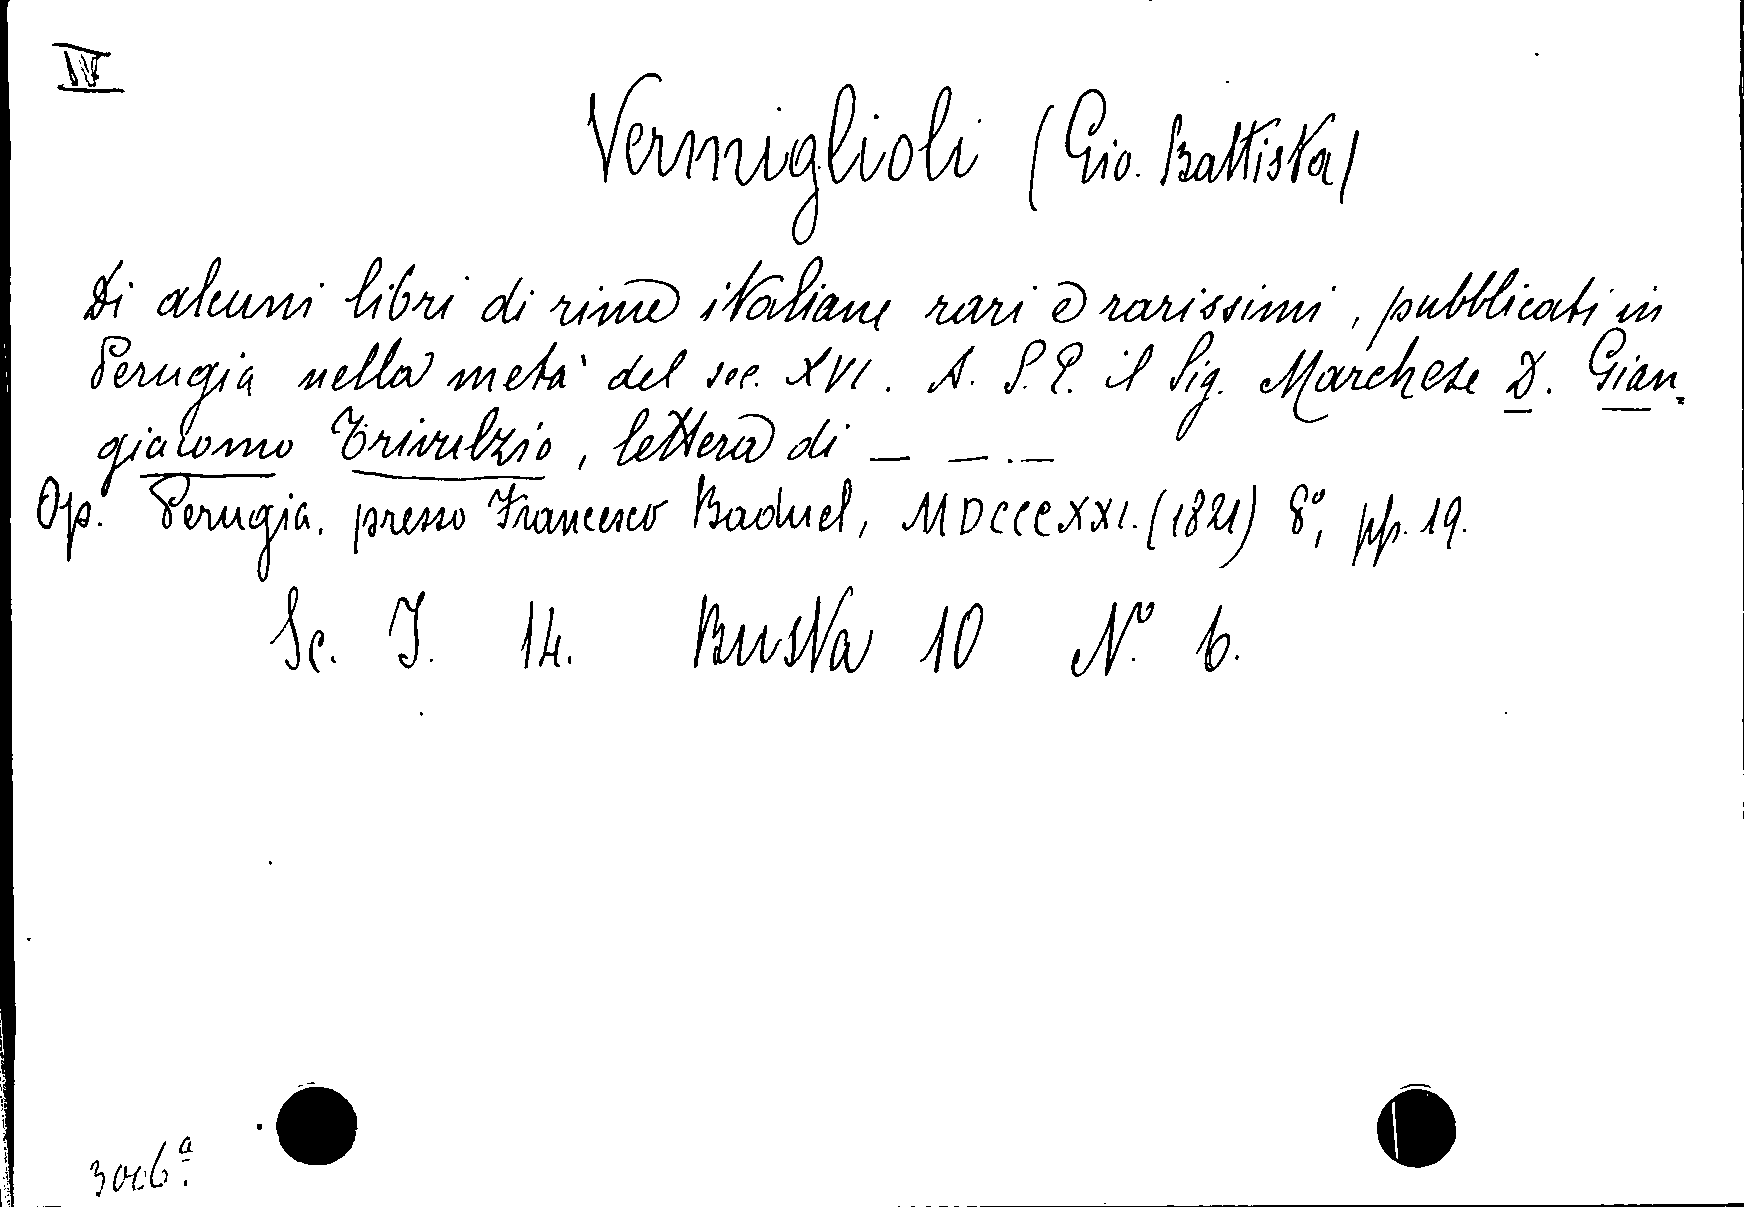 IV
Vermiglioli (Gio. Battista)
Di alcuni libri di rime italiane rari e rarissimi, pubblicati in
Perugia nella metà del sec. XVI. A. S. E. il Sig. Marchese D. Gian=
giacomo Trivulzio, lettera di _ _ . _
Op. Perugia, presso Francesco Baduel, MDCCCXXI. (1821) 8°, pp. 19.
Sc. I. 14. Busta 10 N.° 6.
3006ª.